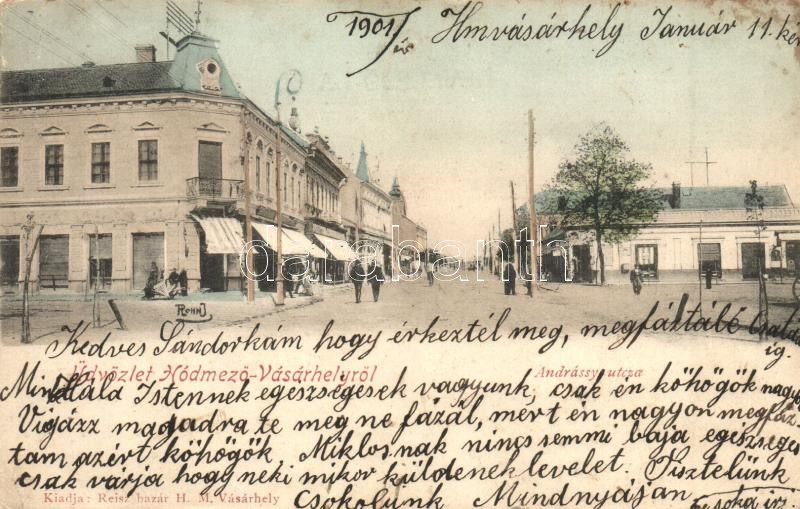 1901 Hmvásárhely Január 11.
darabanth
Rohn J
Kedves Sándorkám hogy érkeztél meg, megfáztál é
Üdvözlet Hódmező-Vásárhelyről
Andrássy utcza
Mind hála Istennek egészségesek vagyunk, csak én köhögök
Vigázz magadra te meg ne fázál, mert én nagyon megfáz
tam azért köhögök, Miklosnak nincs semmi baja egészséges
csak várja hogy neki mikor küldenek levelet. Tisztelünk
Kiadja: Reisz bazár H. M. Vásárhely
Csokolunk Mindnyájan